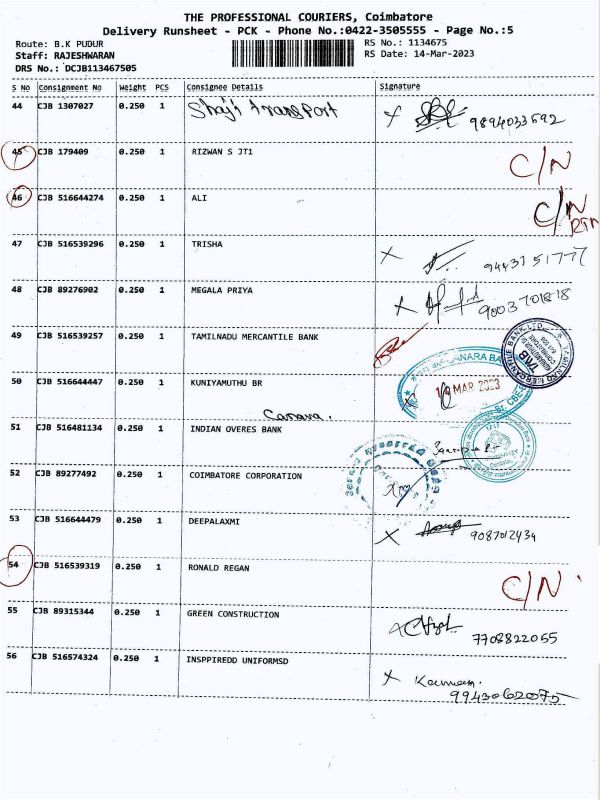 THE PROFESSIONAL COURIERS, Coimbatore
Delivery Runsheet - PCK - Phone No.:0422-3505555 - Page No.:5
Route: B.K PUDUR
RS No.: 1134675
Staff: RAJESHWARAN
RS Date: 14-Mar-2023
DRS No.: DCJB113467505
S No Consignment No Weight PCS Consignee Details Signature
44 CJB 1307027 0.250 1 Shaji Transport 9894033592
45 CJB 179409 0.250 1 RIZWAN S JT1 C/N
46 CJB 516644274 0.250 1 ALI C/N
RTN
47 CJB 516539296 0.250 1 TRISHA 9443751777
48 CJB 89276902 0.250 1 MEGALA PRIYA 9003701818
49 CJB 516539257 0.250 1 TAMILNADU MERCANTILE BANK
50 CJB 516644447 0.250 1 KUNIYAMUTHU BR
Canara.
MAR 2023
51 CJB 516481134 0.250 1 INDIAN OVERES BANK
52 CJB 89277492 0.250 1 COIMBATORE CORPORATION
53 CJB 516644479 0.250 1 DEEPALAXMI 9087012434
54 CJB 516539319 0.250 1 RONALD REGAN C/N
55 CJB 89315344 0.250 1 GREEN CONSTRUCTION 7708822055
56 CJB 516574324 0.250 1 INSPPIREDD UNIFORMSD
9943062075